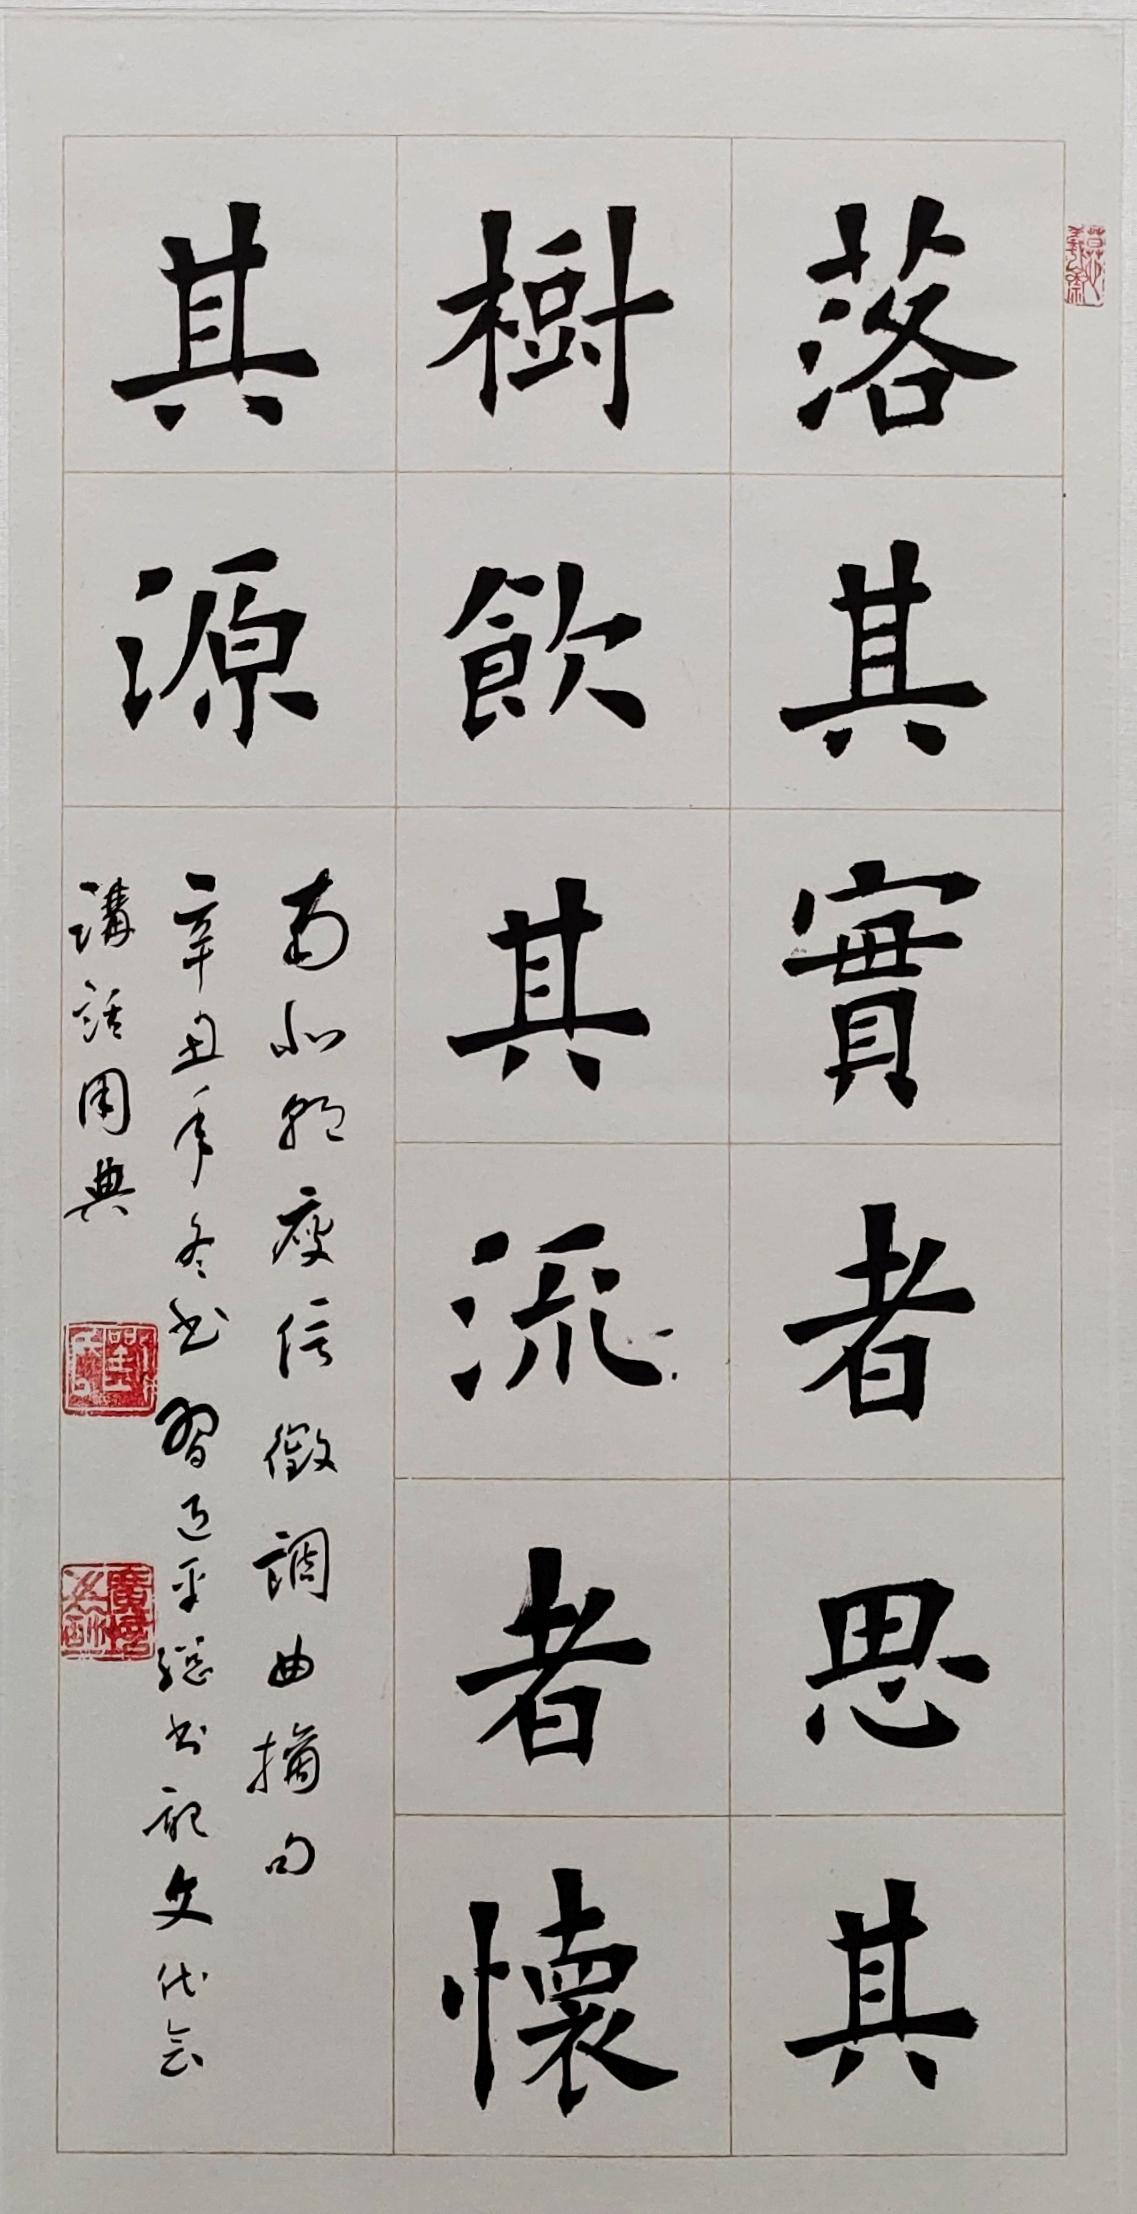 落其實者思其
樹飲其流者懷
其源
南北朝庾信徵調曲摘句
辛丑年冬书習近平總书記文代会
講話用典